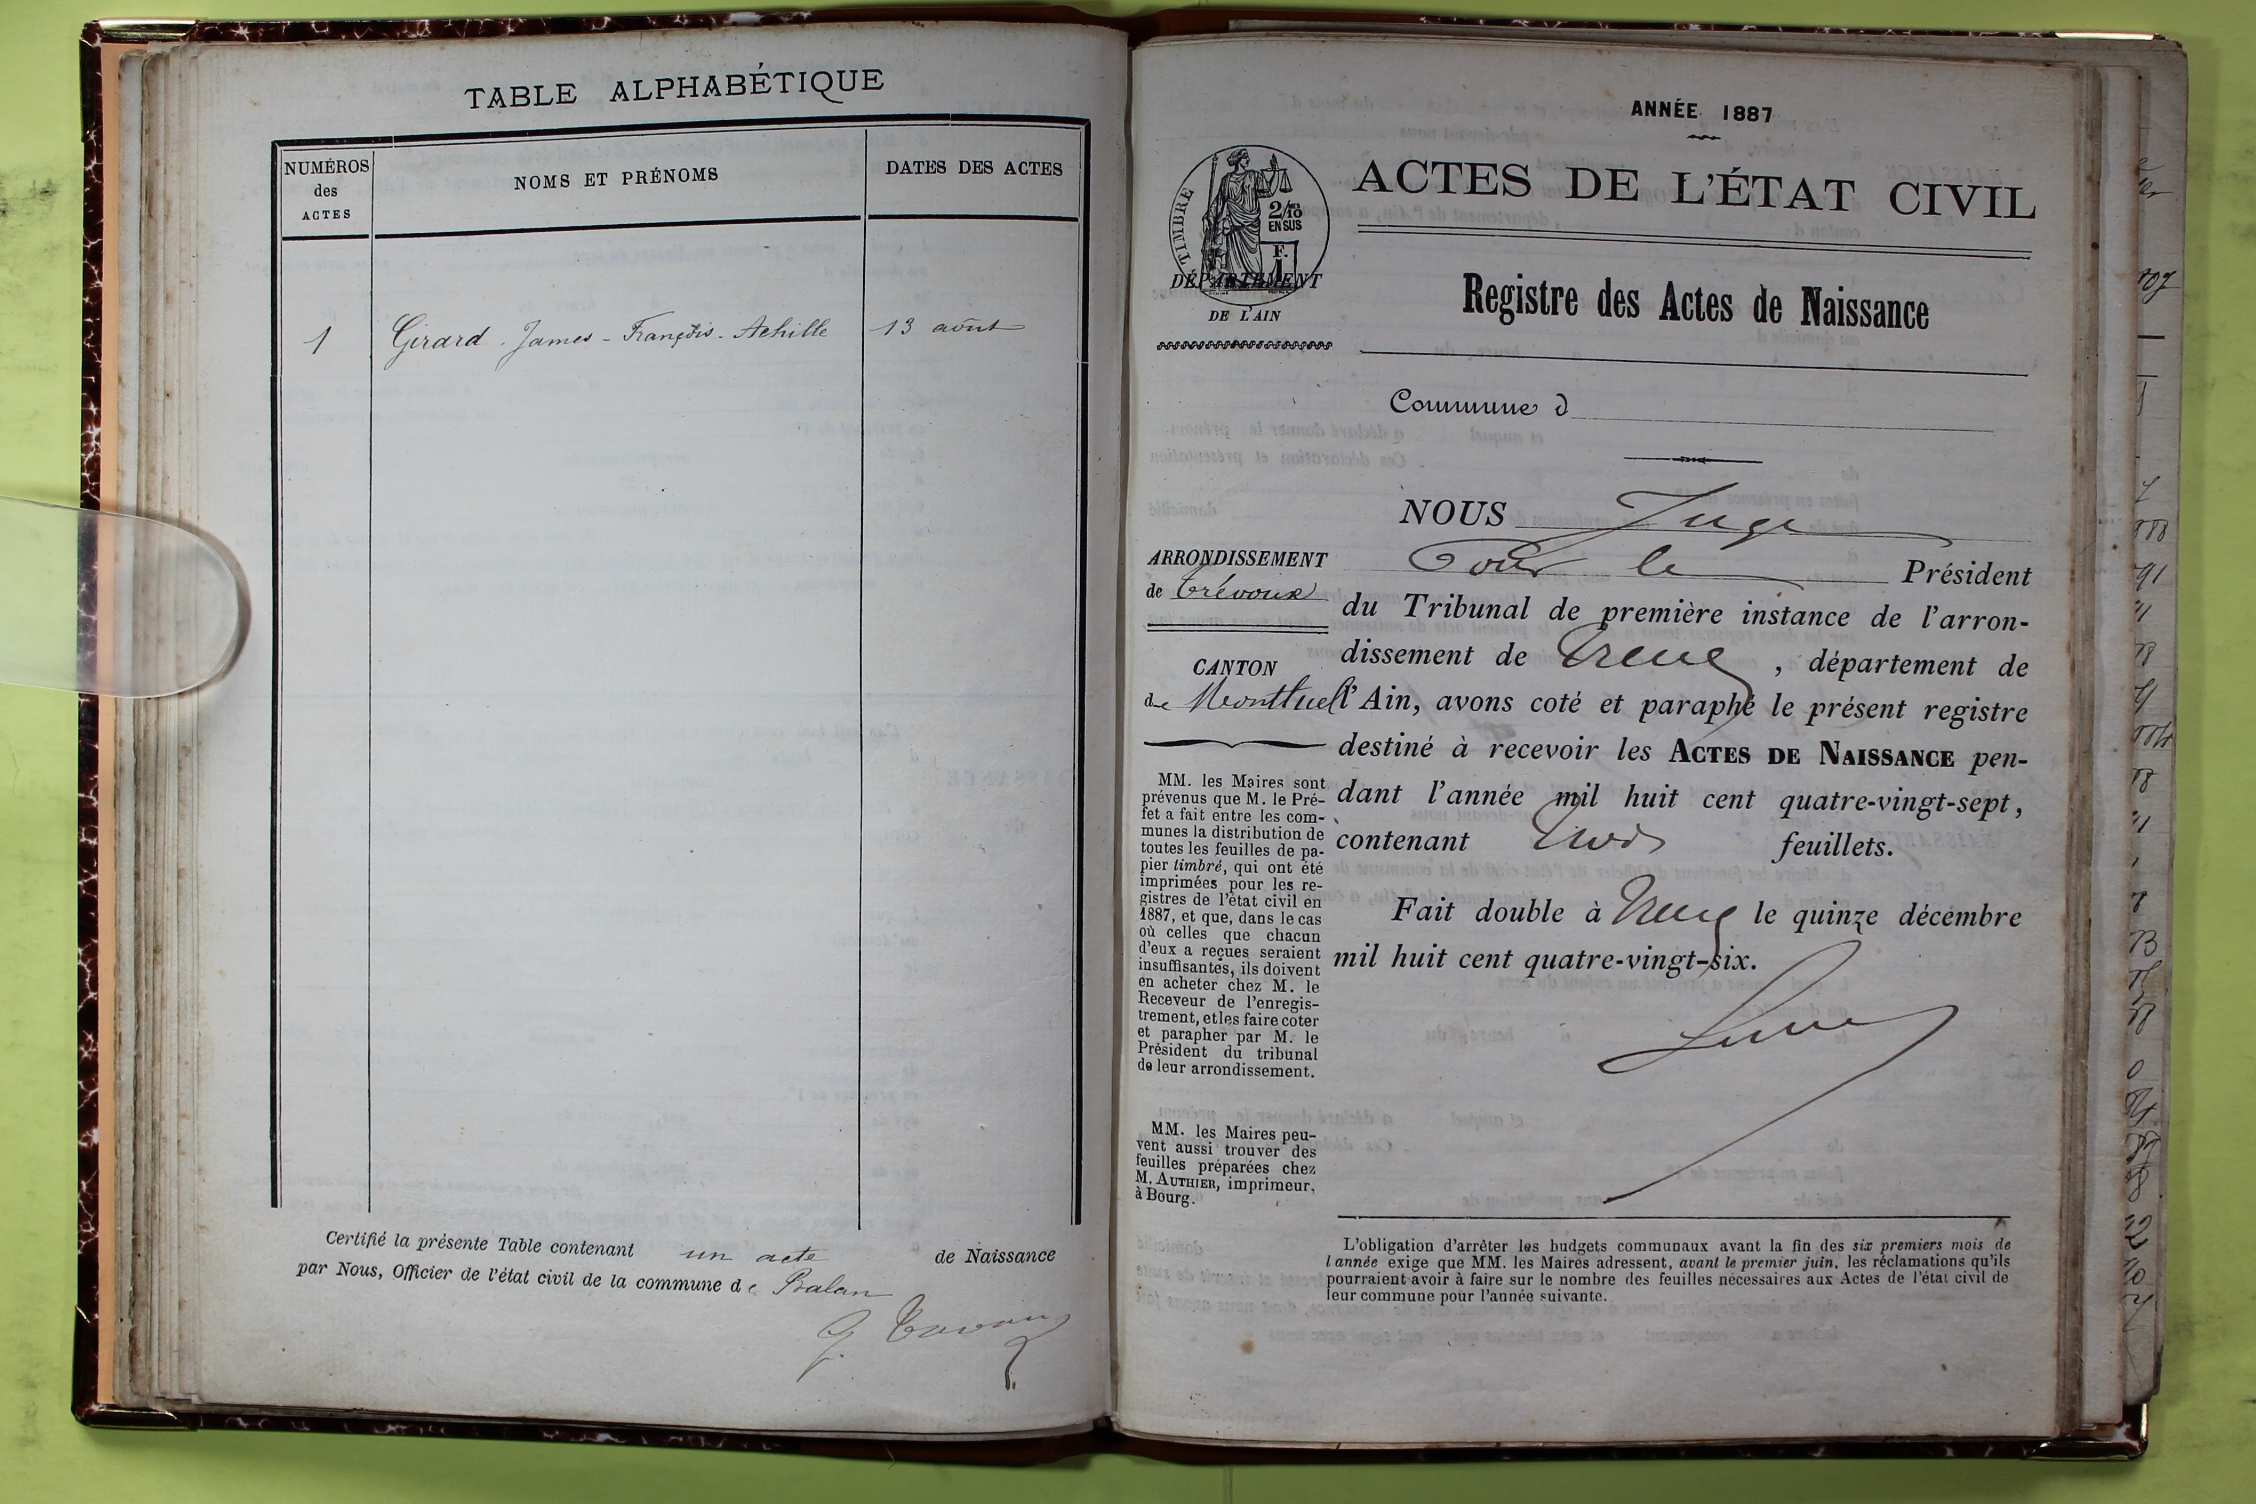 TABLE ALPHABÉTIQUE
NUMÉROS
des
ACTES
NOMS ET PRÉNOMS
DATES DES ACTES
1
Girard James-François-Achille
13 août
Certifié la présente Table contenant un acte de Naissance
par Nous, Officier de l'état civil de la commune de Balan
ANNÉE 1887
ACTES DE L'ÉTAT CIVIL
TIMBRE
2/10
EN SUS
F.
1
DÉPARTEMENT
DE L'AIN
Registre des Actes de Naissance
Commune d
ARRONDISSEMENT
de Trévoux
CANTON
de Montluel
MM. les Maires sont
prévenus que M. le Pré-
fet a fait entre les com-
munes la distribution de
toutes les feuilles de pa-
pier timbré, qui ont été
imprimées pour les re-
gistres de l'état civil en
1887, et que, dans le cas
où celles que chacun
d'eux a reçues seraient
insuffisantes, ils doivent
en acheter chez M. le
Receveur de l'enregis-
trement, et les faire coter
et parapher par M. le
Président du tribunal
de leur arrondissement.
MM. les Maires peu-
vent aussi trouver des
feuilles préparées chez
M. AUTHIER, imprimeur,
à Bourg.
NOUS Juge
Pour le Président
du Tribunal de première instance de l'arron-
dissement de , département de
l'Ain, avons coté et paraphé le présent registre
destiné à recevoir les ACTES DE NAISSANCE pen-
dant l'année mil huit cent quatre-vingt-sept,
contenant trois feuillets.
Fait double à le quinze décembre
mil huit cent quatre-vingt-six.
L'obligation d'arrêter les budgets communaux avant la fin des six premiers mois de
l'année exige que MM. les Maires adressent, avant le premier juin, les réclamations qu'ils
pourraient avoir à faire sur le nombre des feuilles nécessaires aux Actes de l'état civil de
leur commune pour l'année suivante.